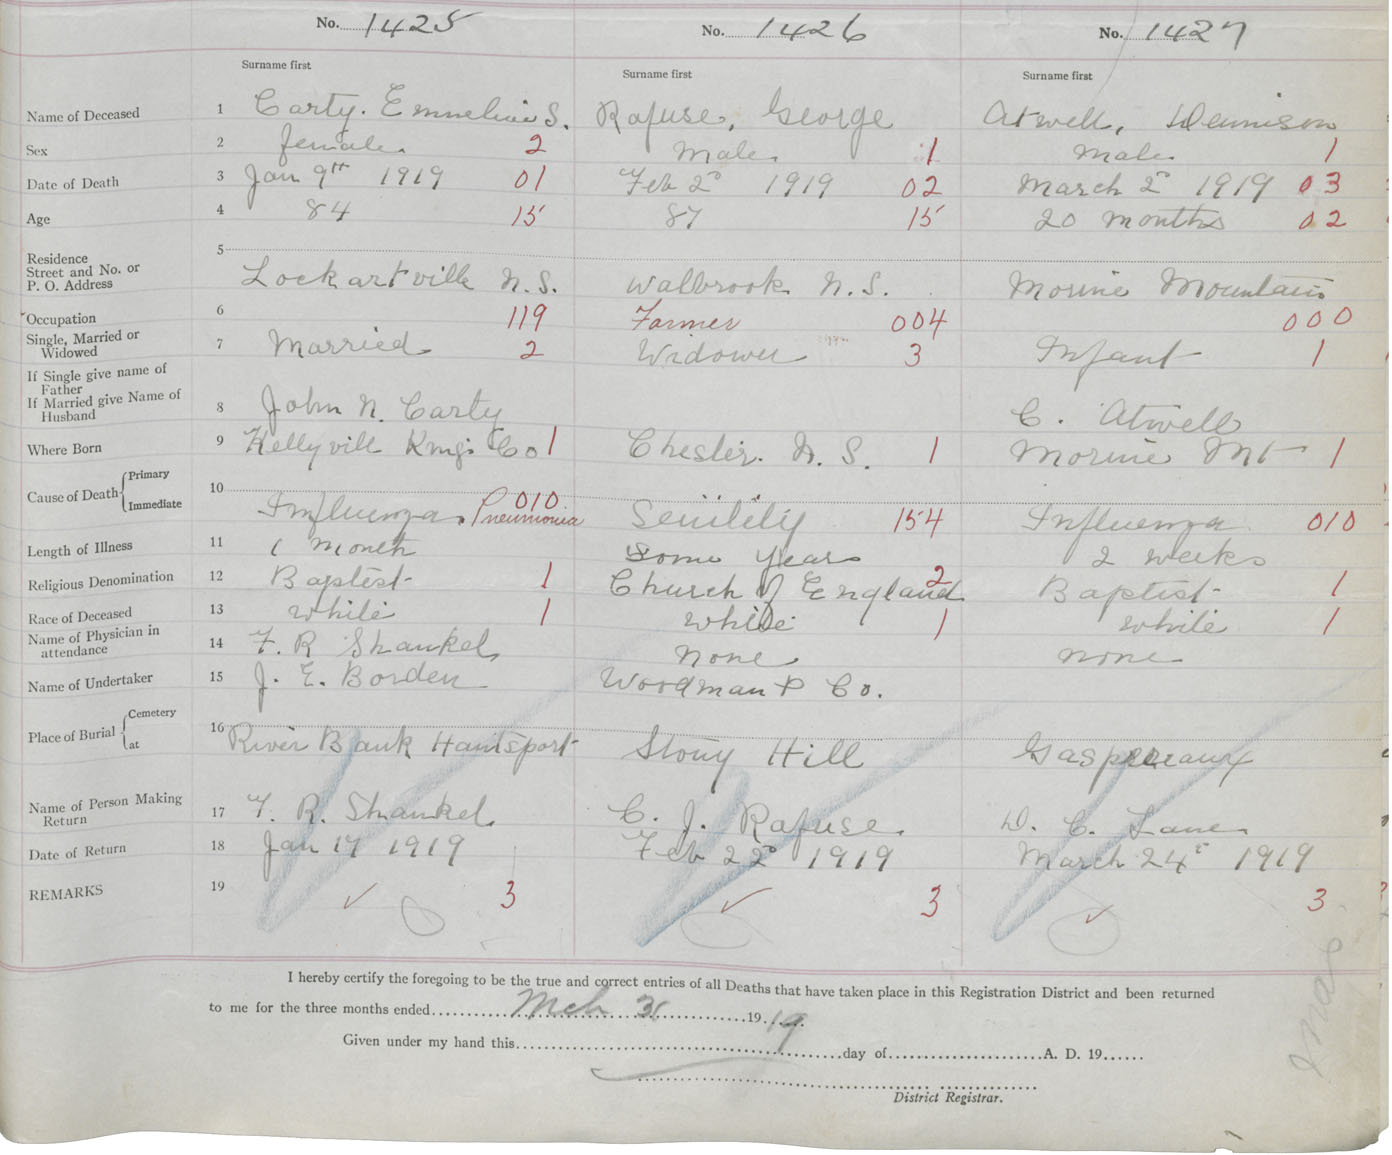 No. 1425 No. 1426 No. 1427
Surname first Surname first Surname first
Name of Deceased 1 Carty. Emmeline S. Rafuse, George Atwell, Dennison
Sex 2 female 2 Male 1 Male 1
Date of Death 3 Jan 9th 1919 01 Feb 2d 1919 02 March 2d 1919 03
Age 4 84 15 87 15 20 months 02
Residence
Street and No. or
P. O. Address
5 Lockartville N.S. Walbrook N.S. Morine Mountain
Occupation 6 119 Farmer 004 000
Single, Married or
Widowed
7 Married 2 Widower 3 Infant 1
If Single give name of
Father
If Married give Name of
Husband
8 John N. Carty C. Atwell
Where Born 9 Kellyvill Kings Co 1 Chester. N.S. 1 Morine Mt 1
Cause of Death Primary
Immediate
10 Influenza Pneumonia 010 Senility 154 Influenza 010
Length of Illness 11 1 month Some Years 2 weeks
Religious Denomination 12 Baptist 1 Church of England 2 Baptist 1
Race of Deceased 13 White 1 White 1 White 1
Name of Physician in
attendance
14 F. R Shankel none none
Name of Undertaker 15 J. E. Borden Woodman & Co.
Place of Burial Cemetery
at
16 River Bank Hantsport Stony Hill Gaspereaux
Name of Person Making
Return
17 F. R. Shankel C. J. Rafuse D. C. Lane
Date of Return 18 Jan 17 1919 Feb 22d 1919 March 24th 1919
REMARKS 19 3 3 3
I hereby certify the foregoing to be the true and correct entries of all Deaths that have taken place in this Registration District and been returned
to me for the three months ended Mch 31 1919.
Given under my hand this day of A. D. 19
District Registrar.